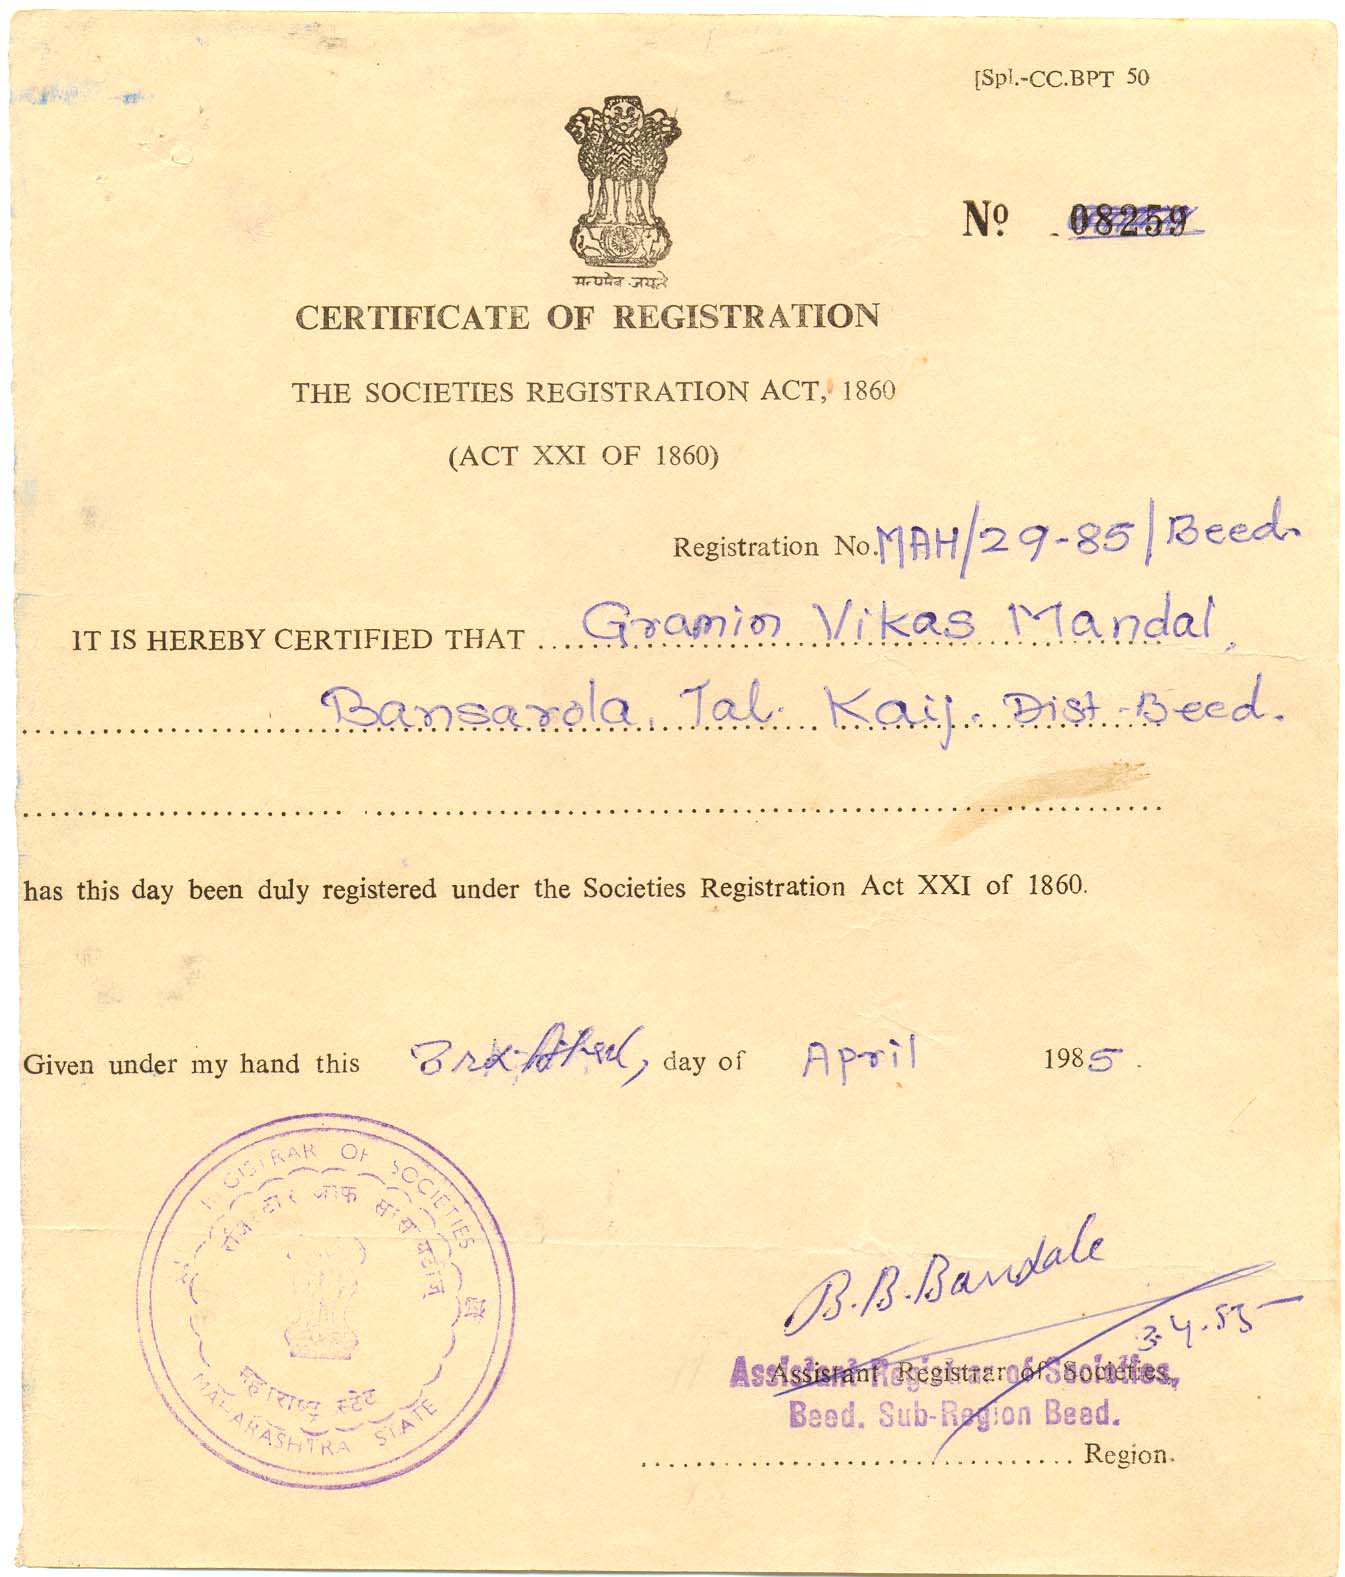 [Spl.-CC.BPT 50
No. 08259
सत्यमेव जयते
CERTIFICATE OF REGISTRATION
THE SOCIETIES REGISTRATION ACT, 1860
(ACT XXI OF 1860)
Registration No. MAH/29-85/Beed.
IT IS HEREBY CERTIFIED THAT Gramin Vikas Mandal,
Bansarola, Tal. Kaij. Dist-Beed.
has this day been duly registered under the Societies Registration Act XXI of 1860.
Given under my hand this 3rd day of April 1985.
REGISTRAR OF SOCIETIES
महाराष्ट्र स्टेट
MAHARASHTRA STATE
B.B.Bandale
3.4.85
Assistant Registrar of Societies,
Assistant Registrar of Societies,
Beed. Sub-Region Beed.
Region.